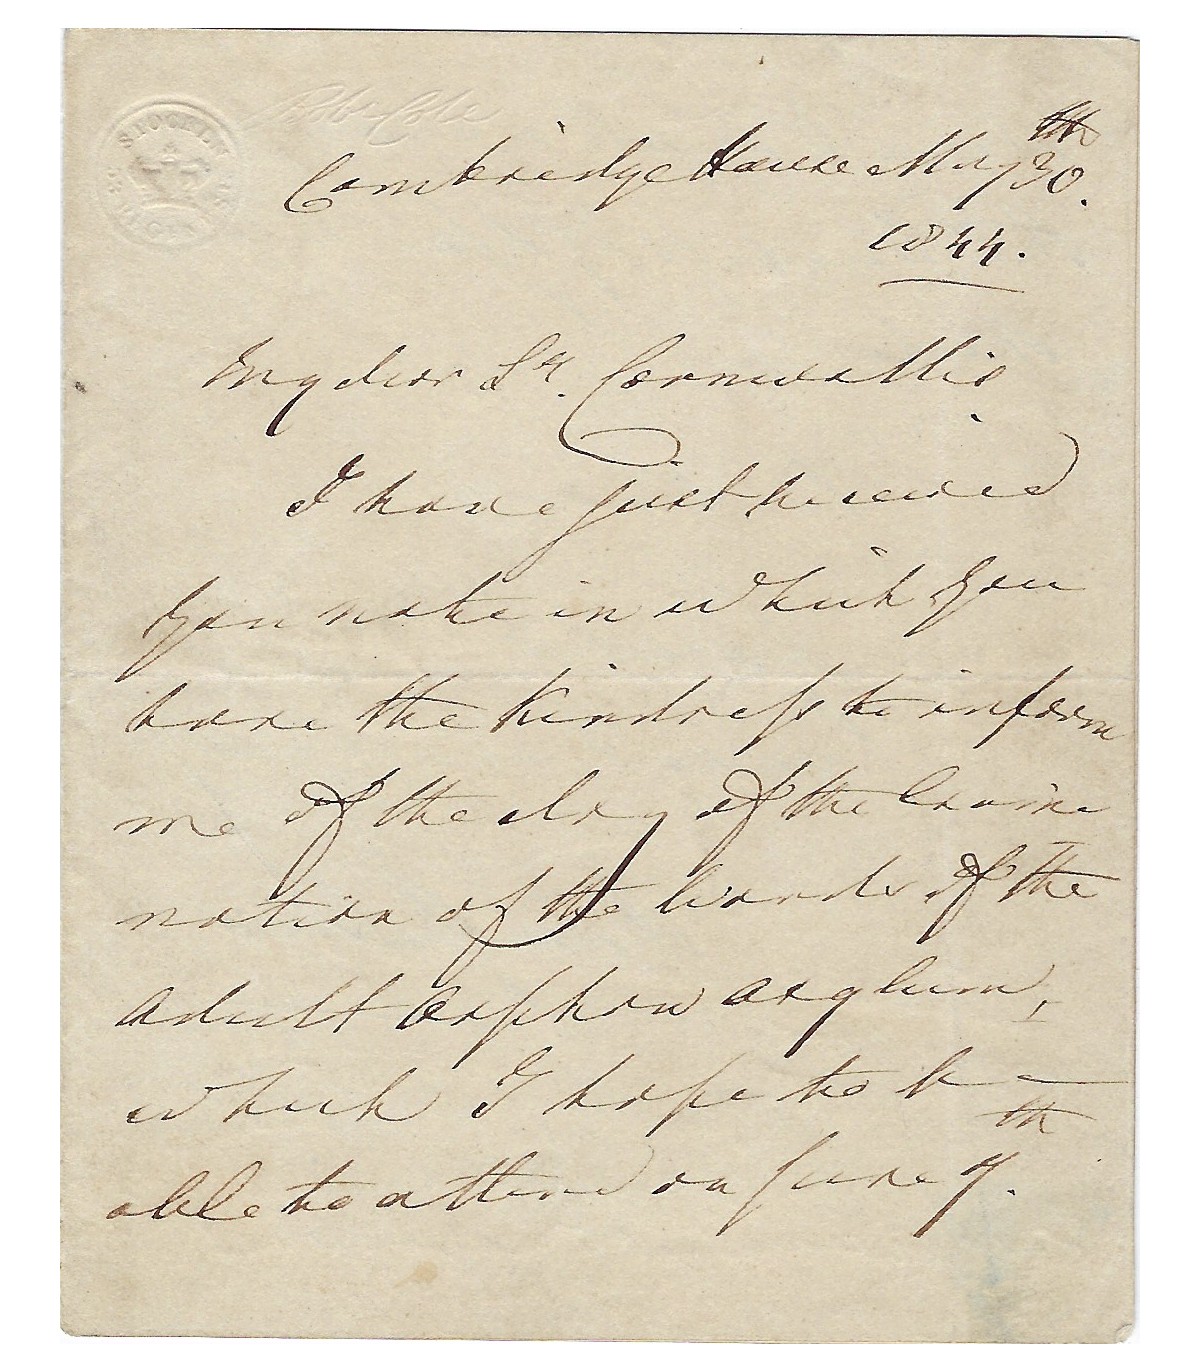 Cambridge House May 30th.
1844.
My dear Lr. Cornwallis.
I have just received
you note in which you
have the kindness to inform
me of the day of the Exami
nation of the Wards of the
Adult Orphan Asylum,
which I hope to be
able to attend on June 7th.